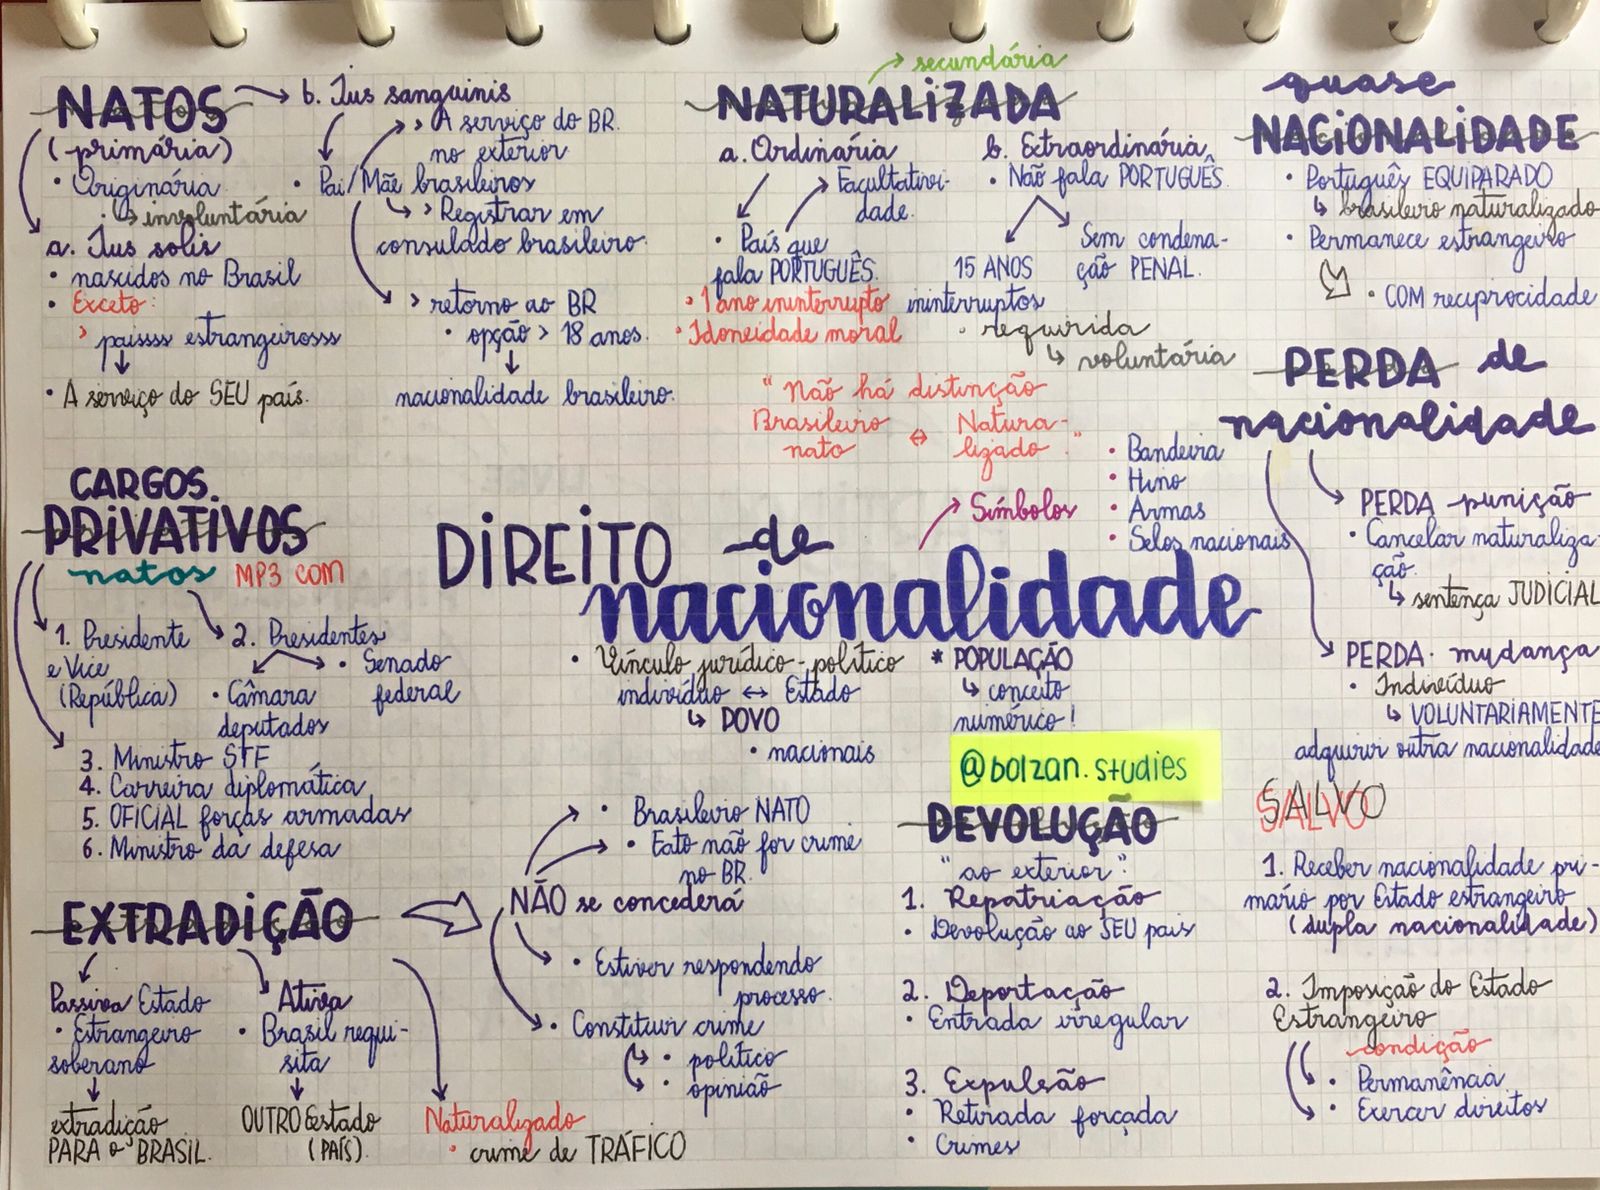 NATOS
(primária)
• Originária
↳ involuntária
a. Jus solis
• nascidos no Brasil
• Exceto:
> paissss estrangeirosss
• A serviço do SEU país.
b. Jus sanguinis
• Pai/Mãe brasileiros
> A serviço do BR.
no exterior
↳ > Registrar em
consulado brasileiro.
> retorno ao BR
• opção > 18 anos.
nacionalidade brasileiro.
NATURALIZADA
secundária
a. Ordinária
Facultativi-
dade.
• País que
fala PORTUGUÊS.
• 1 ano ininterrupto
• Idoneidade moral
b. Extraordinária
• Não fala PORTUGUÊS
15 ANOS
ininterruptos
Sem condena-
ção PENAL.
• requirida
↳ voluntária
"Não há distinção
Brasileiro ⇔ Natura-
nato lizado"
quase
NACIONALIDADE
• Português EQUIPARADO
↳ brasileiro naturalizado
• Permanece estrangeiro
• COM reciprocidade
PERDA de
nacionalidade
PERDA punição
• Cancelar naturaliza-
ção.
↳ sentença JUDICIAL
PERDA. mudança
• Indivíduo
↳ VOLUNTARIAMENTE
adquirir outra nacionalidade
SALVO
1. Receber nacionalidade pri-
mário por Estado estrangeiro
(dupla nacionalidade)
2. Imposição do Estado
Estrangeiro
condição
• Permanência
• Exercer direitos
CARGOS.
PRIVATIVOS
natos MP3 COM
1. Presidente
e Vice
(República)
2. Presidentes
• Câmara
deputados
• Senado
federal
3. Ministro STF
4. Carreira diplomática
5. OFICIAL forças armadas
6. Ministro da defesa
DIREITO de
nacionalidade
Símbolos
• Bandeira
• Hino
• Armas
• Selos nacionais
• Vínculo jurídico-político
indivíduo ↔ Estado
↳ DOVO
• nacionais
* POPULAÇÃO
↳ conceito
numérico!
@bolzan.studies
EXTRADIÇÃO
Passiva Estado
• Estrangeiro
soberano
extradição
PARA o BRASIL.
Ativa
• Brasil requi-
sita
OUTRO Estado
(PAÍS).
Naturalizado
• crime de TRÁFICO
NÃO se concederá
• Brasileiro NATO
• Fato não for crime
no BR.
• Estiver respondendo
processo.
• Constituir crime
• político
• opinião
DEVOLUÇÃO
"ao exterior".
1. Repatriação
• Devolução ao SEU país
2. Deportação
• Entrada irregular
3. Expulsão
• Retirada forçada
• Crimes